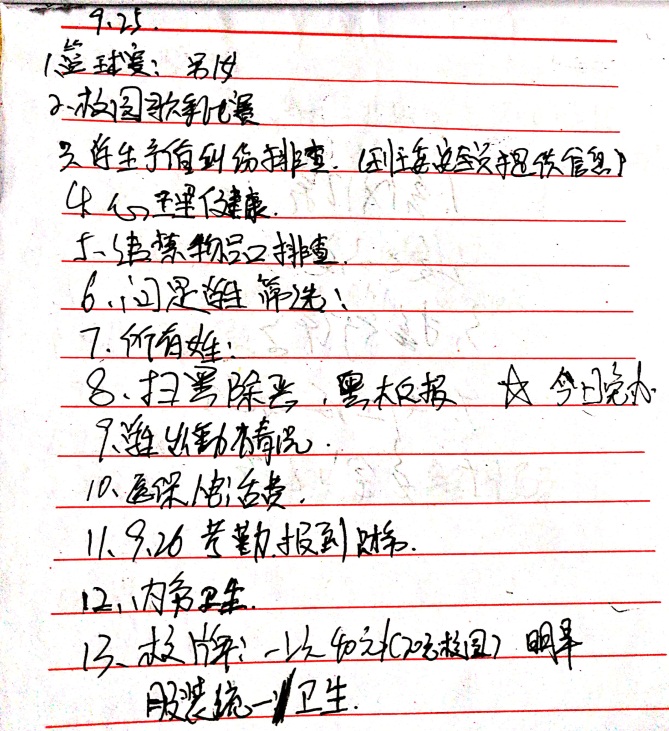 9.25.
1.篮球赛：男18
2.校园歌手比赛
3.学生矛盾纠纷排查.(到主要安全员提供信息)
4.心理健康.
5.违禁物品排查.
6.问题学生筛选；
7.所有学生：
8.扫黑除恶，黑板报 ☆ 今日完办
9.学生出勤情况.
10.医保、生活费.
11、9.26 考勤报到
12.内务卫生.
13、校牌：一次40元 (20元校园) 明早
服装统一 卫生.